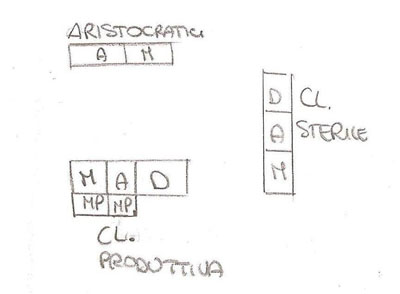 ARISTOCRATICI
A M
D CL.
A STERILE
M
M A D
MP MP.
CL.
PRODUTTIVA